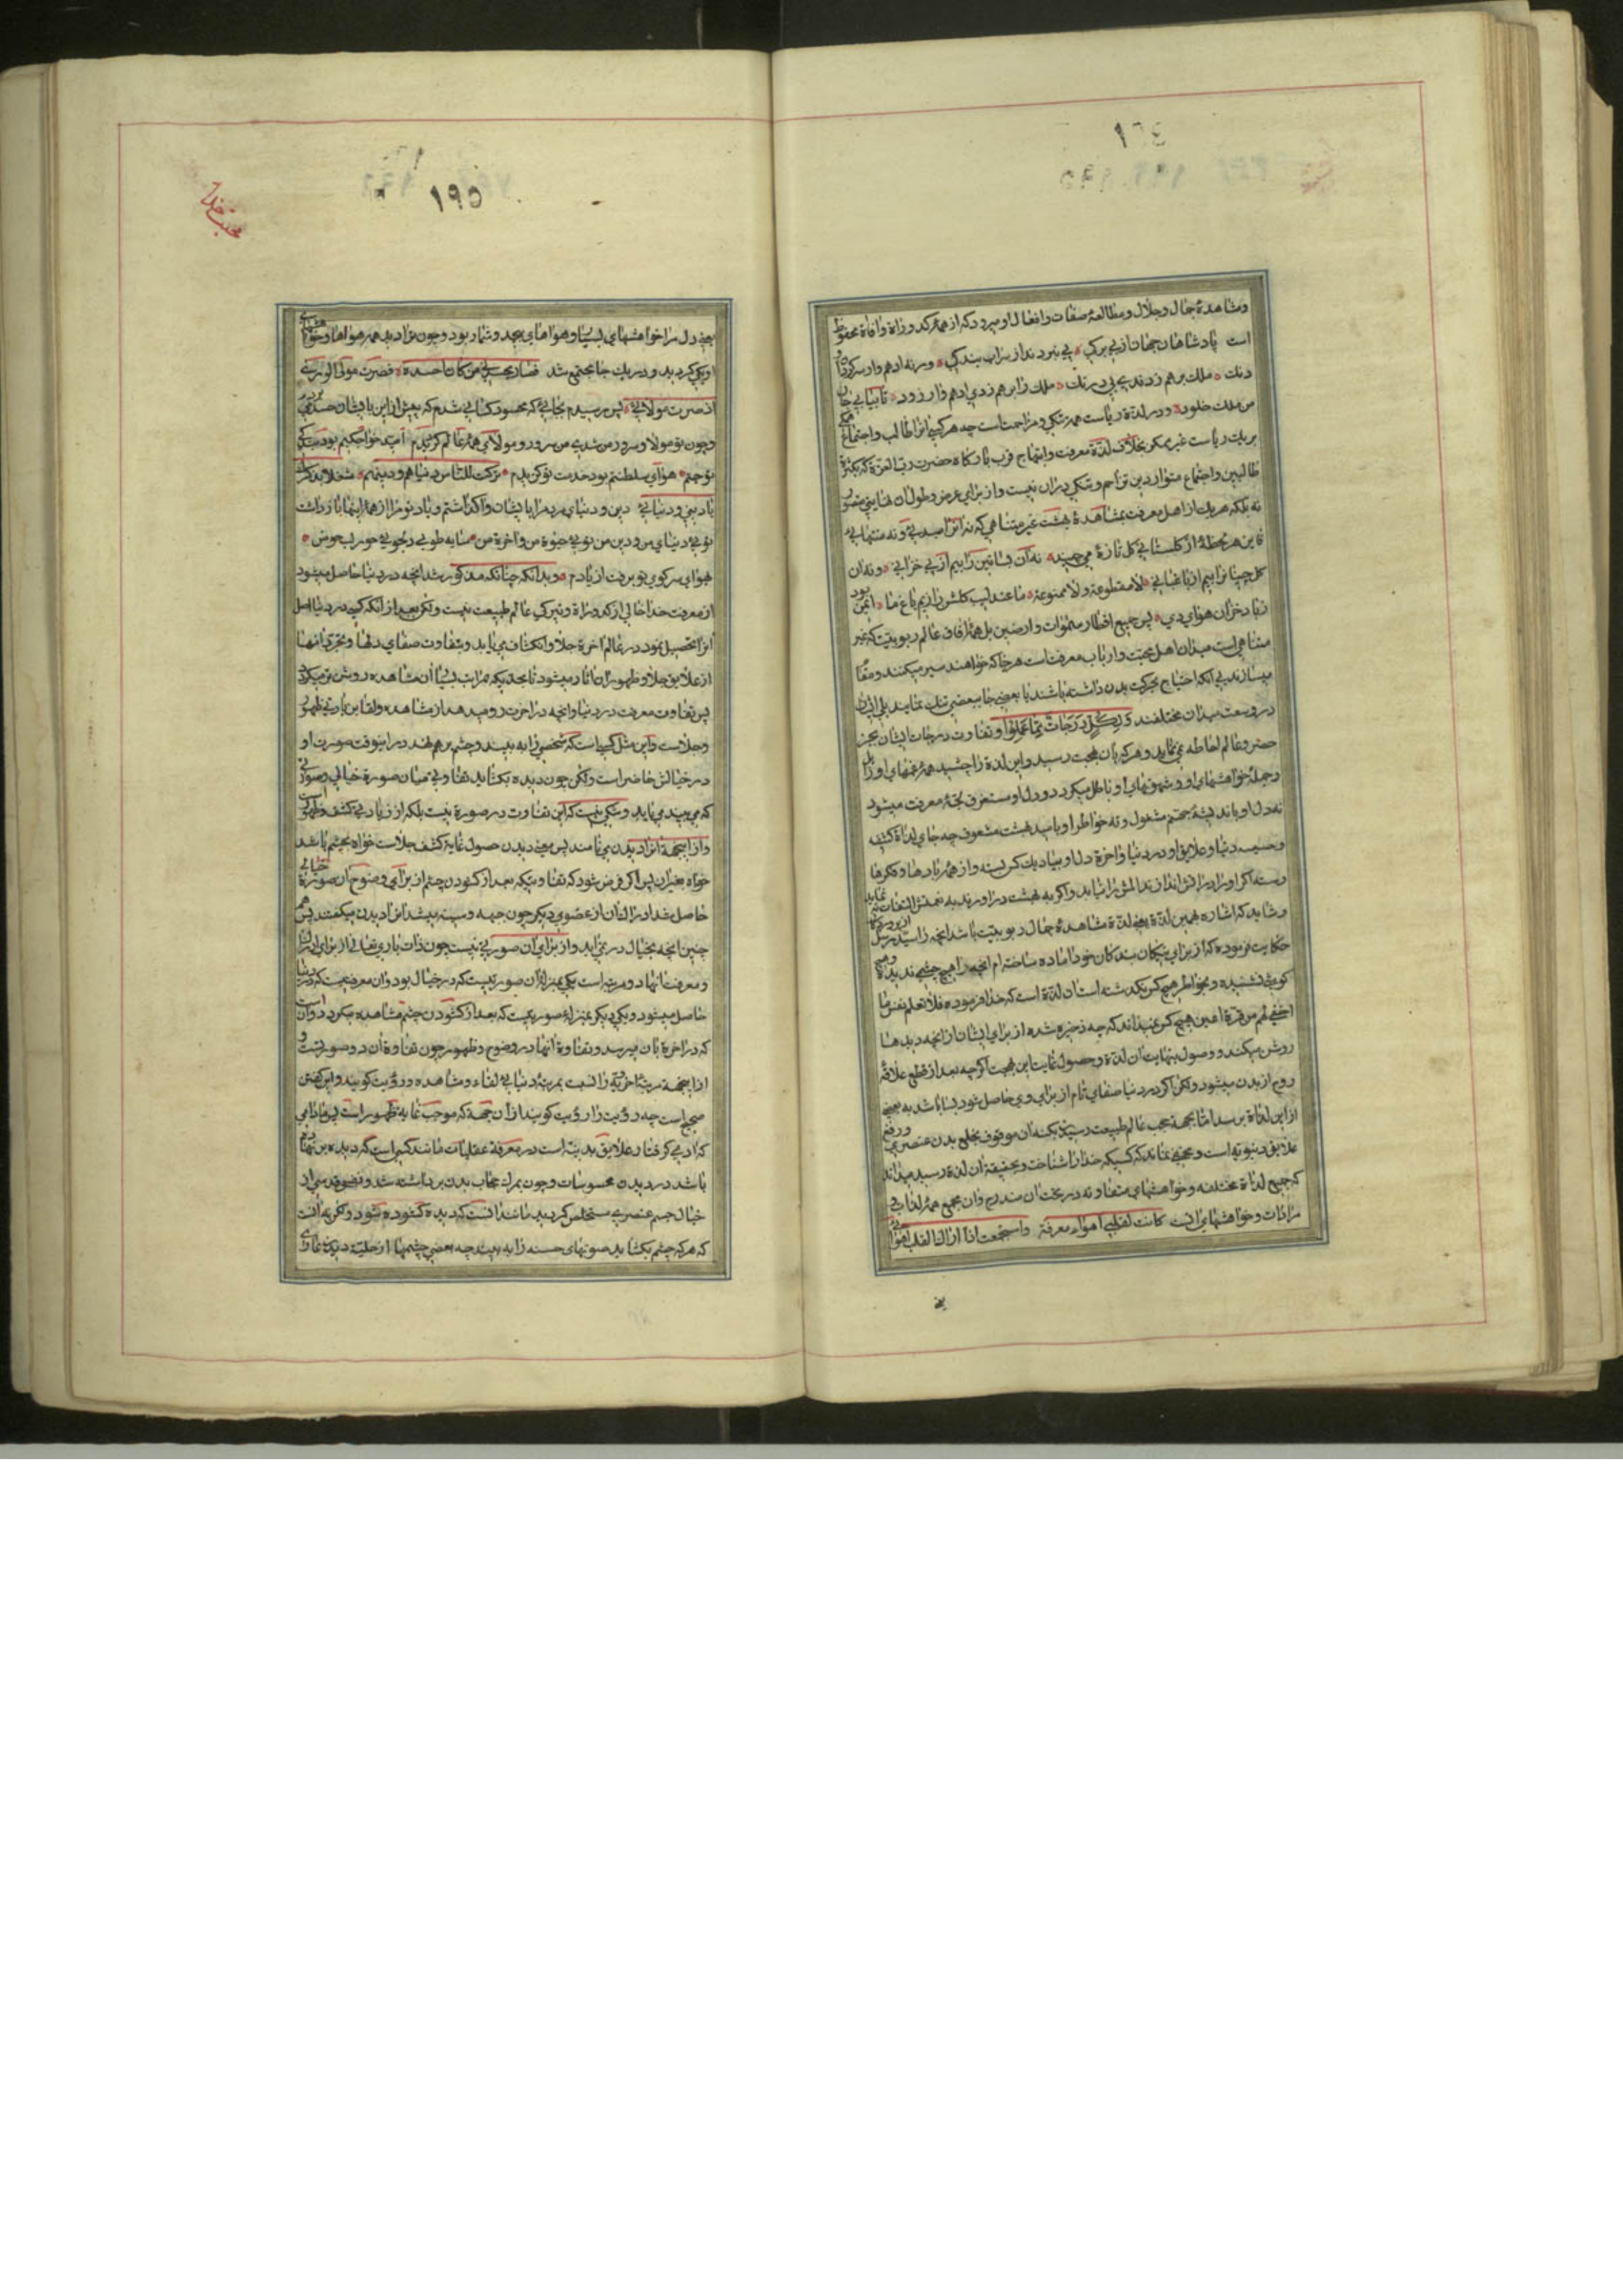 و مشاهدهٔ جمال و جلال و مطالعهٔ صفات و افعال او میرود که از همهٔ کدورات و افات محفوظ
است پادشاهان جهان از بی برگی * پی نبردند از شراب بندگی * ورنه ادهم وار سرگردان و
دنک * ملک برهم زدندی بی درنک * ملک را برهم زدی ادهم وار زود * تا بیابی
من ملک خلود * و در لذة ریاست همه تنگی و مزاحمتست چه هر کسی انرا طالب و اجتماع همگی
بر یک ریاست غیر ممکن بخلاف لذة معرفت و ابتهاج قرب بارگاه حضرت رب العزة که بکثرة
طالبین و اجتماع متواردین تزاحم و تنگی دران نیست و از برای عرض و طول ان نهایتی متصور
نه بلکه هر یک از اهل معرفت بمشاهدهٔ بهشت غیر متناهی که نه انرا مبدئی و نه منتهائی
فایز هر لحظهٔ از گلستانی گل تازهٔ می‌چیند * نه آن بساتین را بیم از پی خزانی * و نه ان
گل چینانرا بیم از باغبانی * لا مقطوعة و لا ممنوعة * ما عندلیب گلشن رازیم باغ ما * ایمن بود
زباد خزان هوای دی * پس جمیع اقطار سموات و ارضین بل همهٔ افاق عالم ربوبیت که غیر
متناهی است میدان اهل محبت و ارباب معرفت است هر جا که خواهند سیر میکنند و مقام
میسازند بی آنکه احتیاج بحرکت بدن داشته باشند یا بعضی جا ببعضی تنک نمایند بلی ایشان
در وسعت میدان مختلفند وَلِکُلٍّ دَرَجاتٌ مِمّا عَمِلُوا و تفاوت درجات ایشان بجز
حصر و عالم احاطه نمی‌نماید و هر که بان محبت رسید و این لذة را چشید همهٔ غمهای او زایل
و جملهٔ خواهشهای او و شهوتهای او باطل میگردد و دل او مستغرق لجهٔ معرفت میشود
نه دل او باندیشهٔ جهنم مشغول و نه خواطر او بامید بهشت مشعوف چه جای لذات کثیف
و خسیسه دنیا و علایق او در دنیا و اخرة دل او بیاد یک کس بسته و از همهٔ یادها و فکرها
رسته اگر او را در اتش اندازند المش را نیابد و اگر به بهشت در اورند به نعمتش التفات ننماید
و شاید که اشاره بهمین لذة یعنی لذة مشاهدهٔ جمال ربوبیت باشد انچه را سید رسل از پروردگار
حکایت فرموده که از برای نیکان بندگان خود اماده ساخته ام انچه را هیچ چشمی ندیده و هیچ
گوش نشنیده و بخواطر هیچکس نگذشته است ان لذة است که خدا فرموده فلا تعلم نفس ما
اخفی لهم من قرة اعین هیچ کس نمیداند که چه ذخیره شده از برای ایشان از انچه دیدها
روشن میکند و وصول بنهایت ان لذة و حصول غایت این بهجت اگرچه بعد از قطع علاقهٔ
روح از بدن میشود ولکن اگر در دنیا صفای تام از برای وی حاصل شود بسا باشد به بعضی
از این لذات برسد اما بجهة حجب عالم طبیعت رسیدن بکنه ان موقوف بخلع بدن عنصری و رفع
علایق دنیویه است و مخفی نماند که کسیکه خدا را شناخت و بحقیقة ان لذة رسید میداند
که جمیع لذات مختلفه و خواهشهای متفاوته در تحت ان مندرج و ان مجمع همهٔ لذایذ
مرادات و خواهشهای انست کانت لقلبی اهواء مفرقة واستجمعت اذ
۱۹۵
یعنی دل مرا خواهشهای بسیار و هواهای بیحد و شمار بود و چون ترا دید همه هواها و خواهشهای
او یکی گردید و در یک جا مجتمع شد فصار یحسدنی من کان احسده * فصرت مولی الوری
اذ صرت مولائی * پس رسیدم بجائی که محسود کسانی شدم که پیش از این بایشان حسد میبردم
و چون تو مولا و سرور من شدی من سرور و مولای همهٔ عالم گردیدم
هوای سلطنتم بود خدمت تو گزیدم * ترکت للناس دنیاهم و دینهم * شغلا بذکرک
یا دینی و دنیائی دین و دنیای مردم را بایشان واگذاشتم و یاد تو مرا از همهٔ اینها بازداشت
توئی دنیای من و دین من توئی حیوة من و اخرة من * سایه طوبی و دلجوئی حور و لب حوض *
بهوای سر کوی تو برفت از یادم * و بدانکه چنانکه مذکور شد انچه در دنیا حاصل میشود
از معرفت خدا خالی از کدورات و تیرگی عالم طبیعت نیست ولکن بعد از انکه کسی در دنیا اصل
انرا تحصیل نمود در عالم اخرة جلا و انکشاف می‌یابد و بتفاوت صفای دلها و تجرد انها
از علایق جلا و ظهور ان اثار میشود تا بحدیکه مراتب بسیار از مشاهده روشن تر میگردد
پس تفاوت معرفت در دنیا و انچه در اخرت رو میدهد از مشاهده و لقا بزیادتی ظهور
و جلاست و این مثل کسی است که شخصی را به بیند و چشم برهم نهد در اینوقت صورت او
در خیالش حاضر است ولکن چون دیده بکشاید تفاوتی میان صورة خیالی و صورتی
که می‌بیند می‌یابد و شکی نیست که این تفاوت در صورة نیست بلکه از زیادتی کشف و ظهور است
و از اینجهة انرا دیدن می‌نامند پس معنی دیدن حصول غایة کشف و جلاست خواه بچشم باشد
خواه بغیر ان پس اگر فرض شود که تفاوتیکه بعد از گشودن چشم از برای وضوح ان صورة خیالی
حاصل شد ادراک ان از عضوی دیگر چون جبهه و سینه میشد انرا دیدن میگفتند پس هم
چنین انچه بخیال در نمی‌اید و از برای ان صورتی نیست چون ذات باری تعالی از برای ادراک
و معرفت انها دو مرتبه است یکی بمنزلهٔ ان صورتیست که در خیال بود و ان معرفتیست که در دنیا
حاصل میشود و یکی دیگر بمنزلهٔ صورتیست که بعد از گشودن چشم مشاهده میگردد و ان است
که در اخرة بان میرسد و تفاوة انها در وضوح و ظهور چون تفاوة ان دو صورتست و
از اینجهة مرتبهٔ اخرویه را نسبت بمرتبهٔ دنیائی لقاء و مشاهده و رؤیت گویند و این گفتن
صحیح است چه رؤیت را رؤیت گویند از ان جهة که موجب غایة ظهور است پس مادامی
که ادمی گرفتار علایق بدنیّه است در معرفة عقلیات مانند کسی است که دیده بر هم نهاده
باشد در دیدن محسوسات و چون بمرک حجاب بدن برداشته شد و نفس قدسی از
خیال جسم عنصری مستخلص گردید مانند انست که دیده گشوده شود ولکن نه انست
که هر که چشم بکشاید صورتهای حسنه را به بیند چه بعضی چشمها از حلیهٔ دیدن عاری